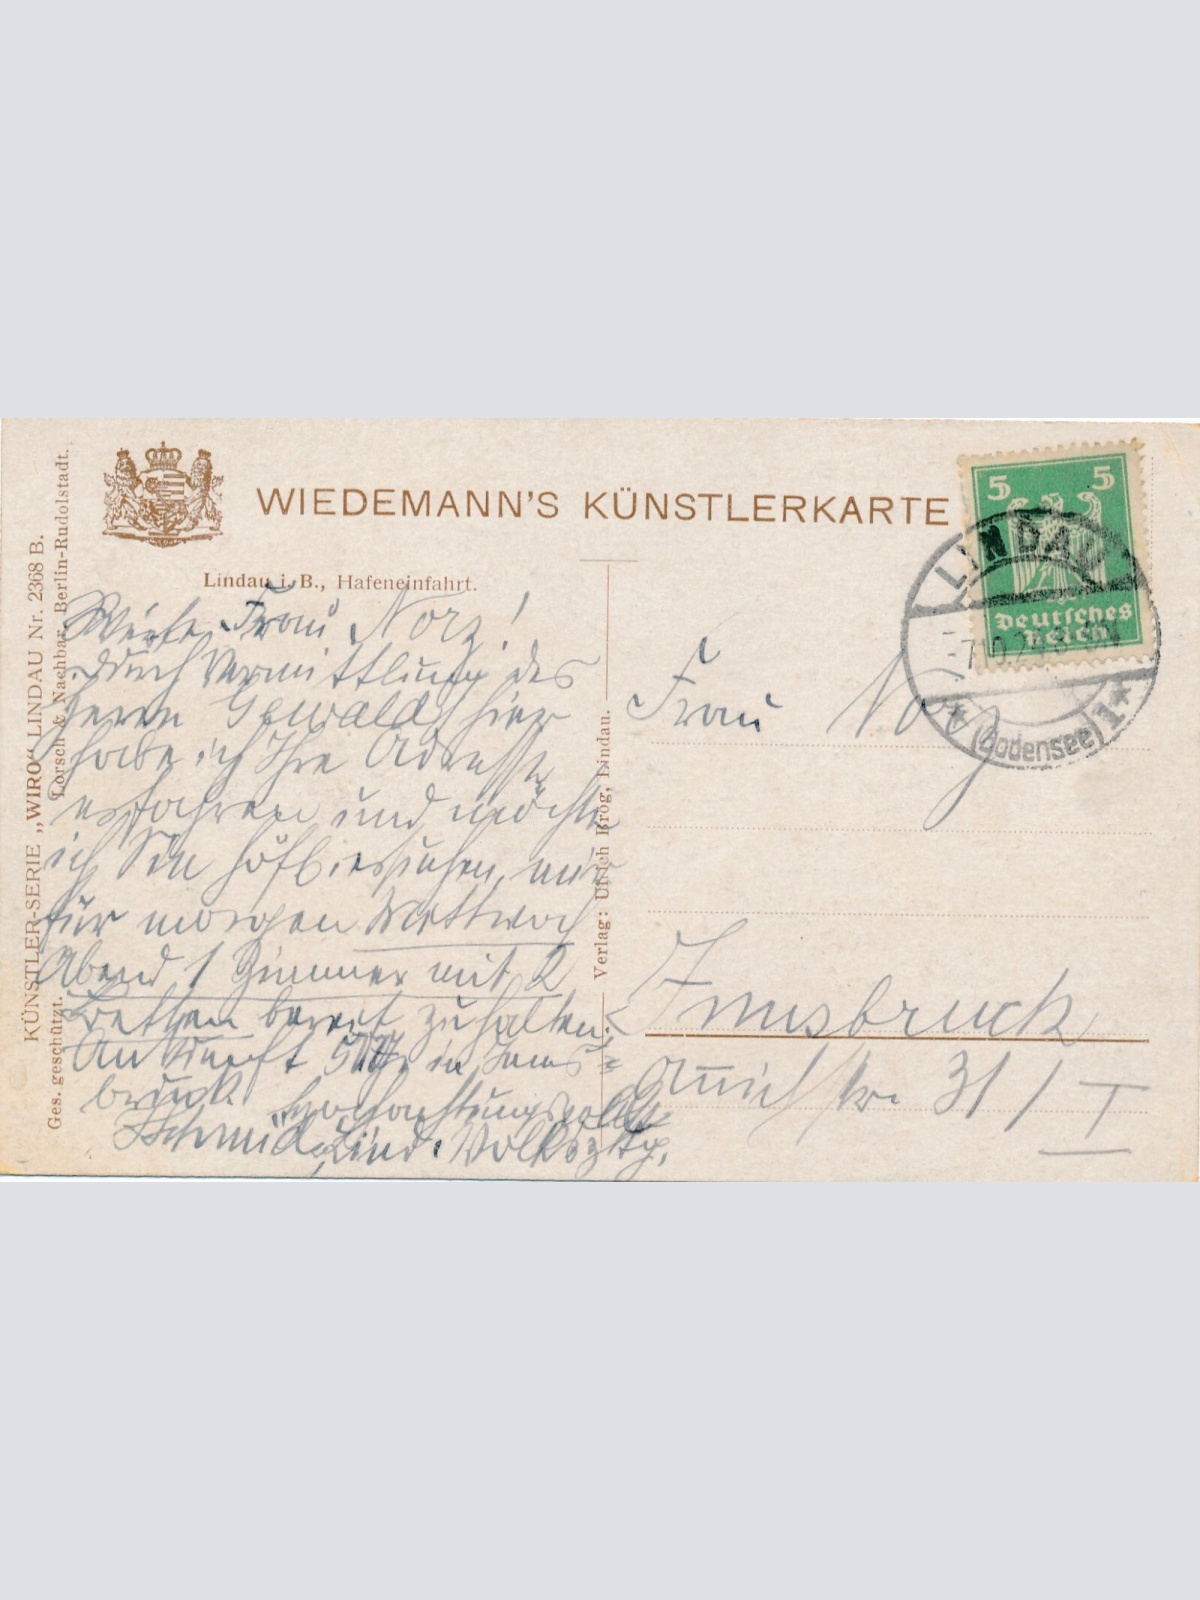 WIEDEMANN'S KÜNSTLERKARTE
Lindau i. B., Hafeneinfahrt.
KÜNSTLER-SERIE „WIRO“ LINDAU Nr. 2368 B.
Ges. geschützt. Lorsch & Nachbar, Berlin-Rudolstadt.
Werte Frau Norz!
Durch Vermittlung des
Herrn Gewald hier
habe ich Ihre Adresse
erfahren und möchte
ich Sie höfl. ersuchen, mir
für morgen Mittwoch
Abend 1 Zimmer mit 2
Betten bereit zu halten.
Ankunft 5 in Inns-
bruck.
Hochachtungsvollst
Schmid, Lind. Volksztg.
Verlag: Ulrich Krog, Lindau.
5 5
Deutsches
Reich
LINDAU
-7.10.24
(Bodensee)
1
Frau Norz
Innsbruck
Anichstr. 31 / I